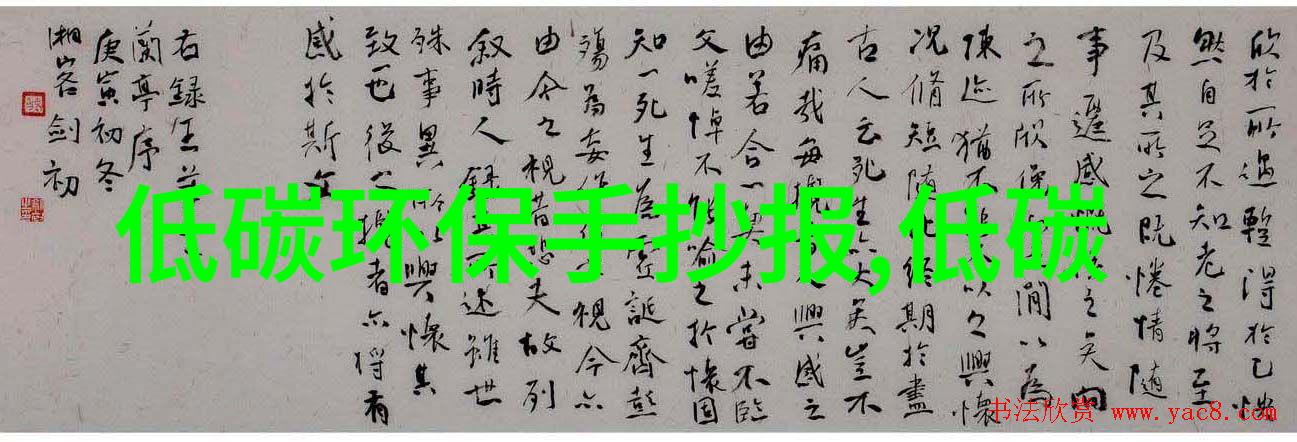 欣於所遇蹔得於己快
然自足不知老之將至
及其所之既惓情隨
事遷感慨之矣向
之所欣俛間以為
陳迹猶不以之興懷
況脩短隨化終期於盡
古人云死生亦大矣豈不
痛哉每攬人興感之
由若合一契未嘗不臨
文嗟悼不能喻之於懷固
知一死生為虛誕齊彭
殤為妄作視今亦
由今之視昔悲夫故列
敘時人錄述雖世
殊事異所以興懷其
致一也後之攬者亦將有
感於斯文
右録王羲
蘭亭序
庚寅初冬
湘客劍初
低碳环保手抄报,低碳
书法欣赏 www.yac8.com